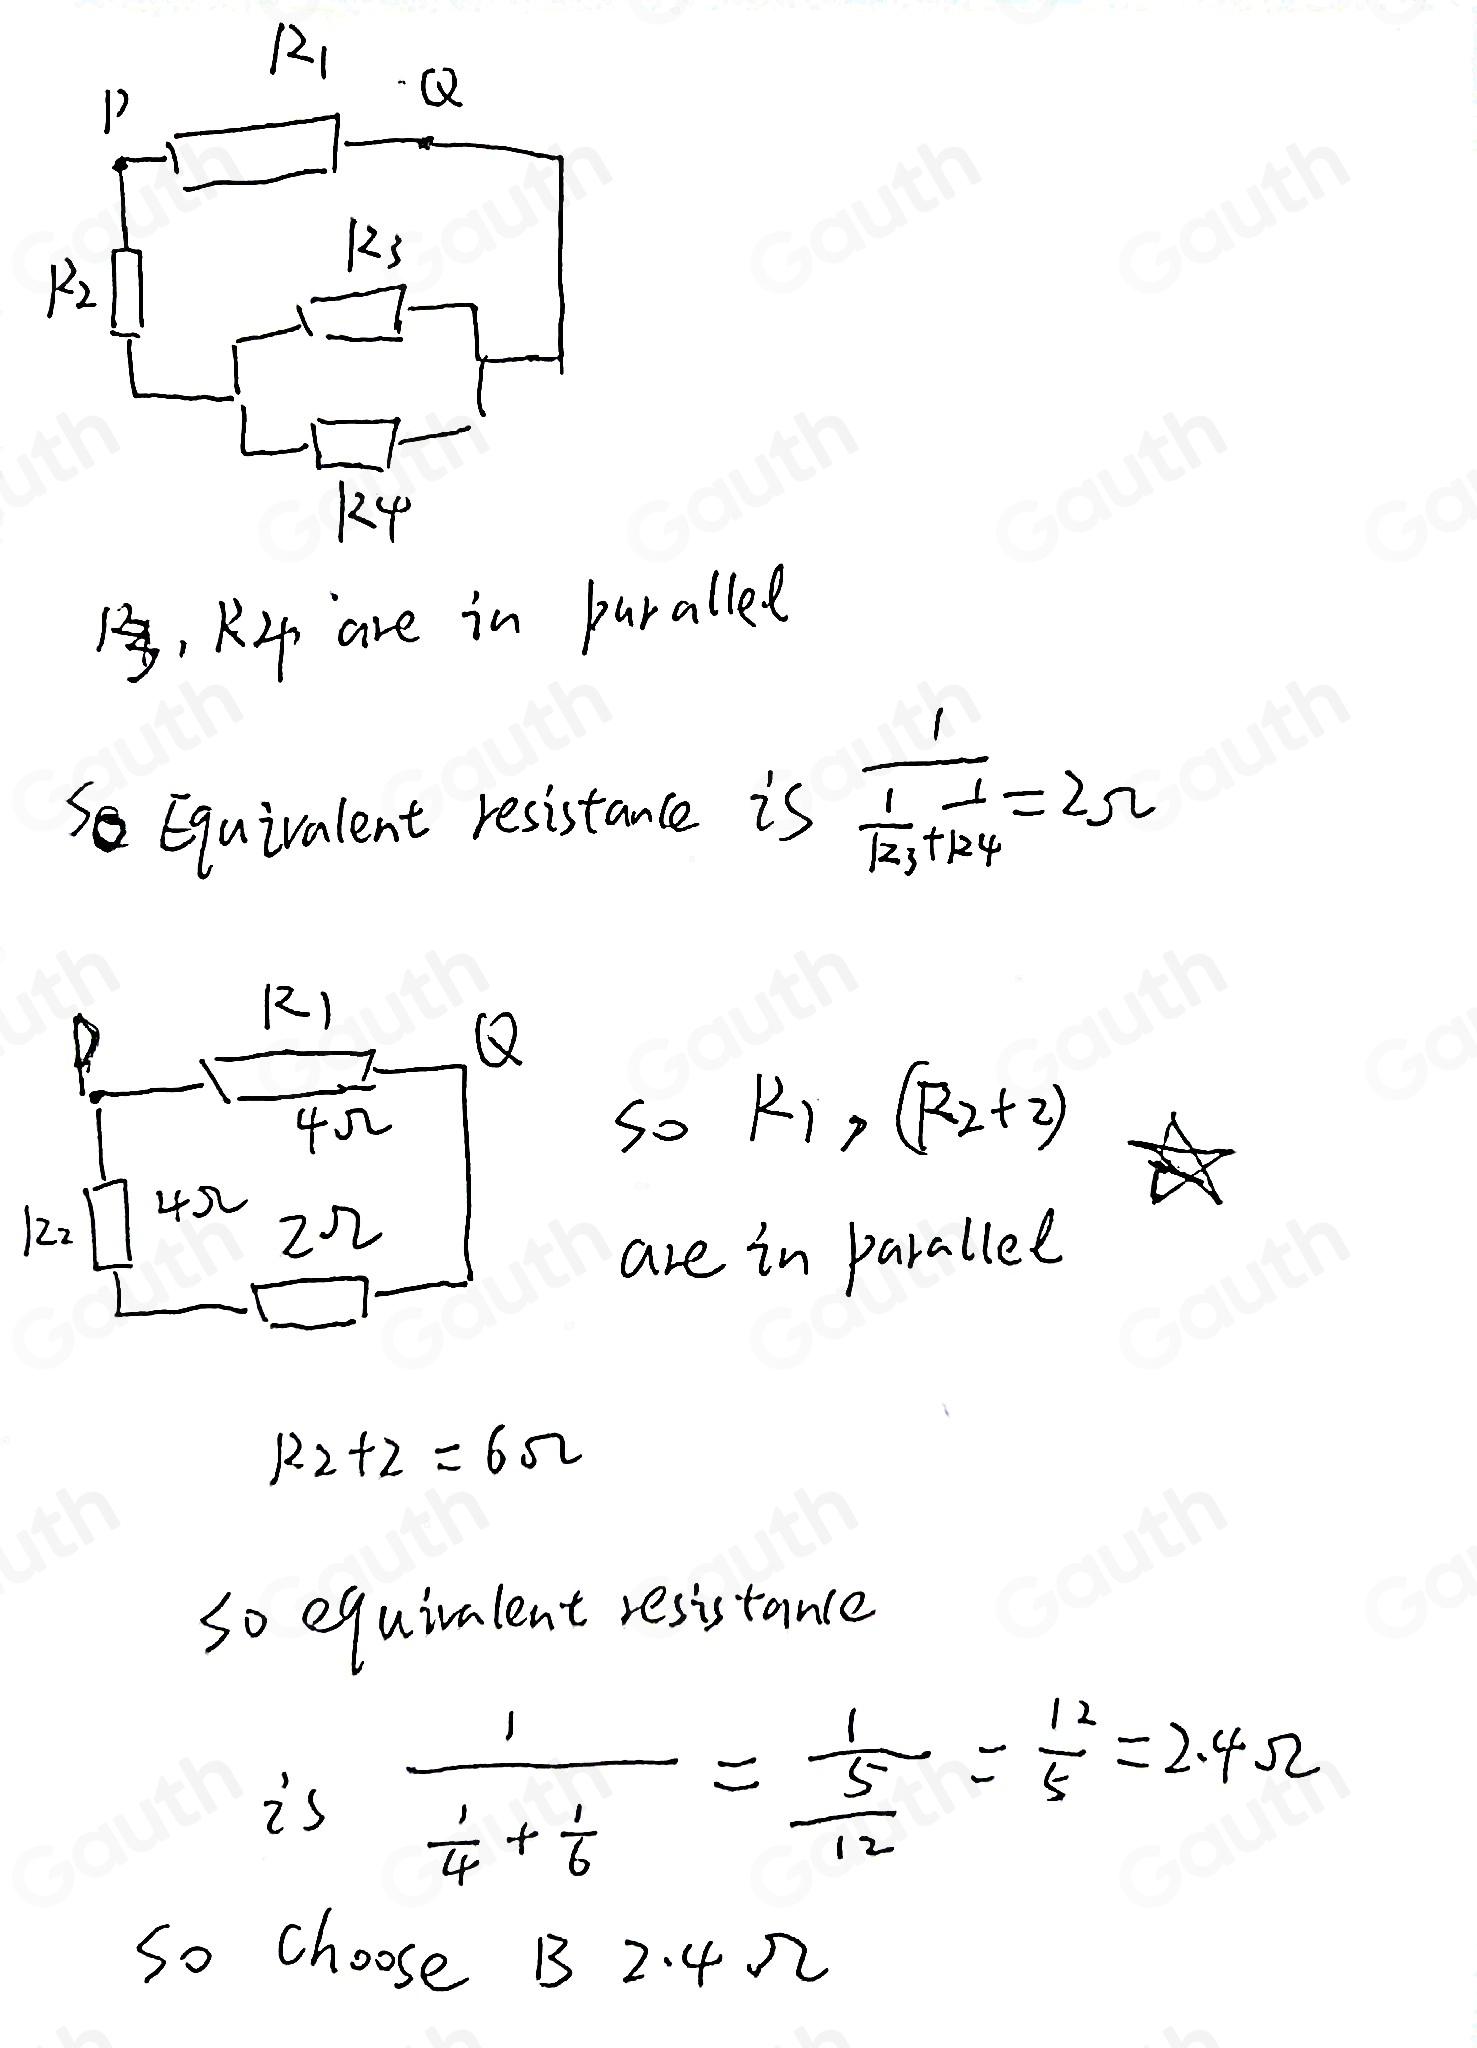 R1
P
Q
R3
R2
R4
R3, R4 are in parallel
So Equivalent resistance is 1/(1/R3+1/R4) = 2Ω
R1
P
Q
4Ω
R2
4Ω
2Ω
so R1, (R2+2)
are in parallel
R2+2 = 6Ω
so equivalent resistance
is 1/(1/4 + 1/6) = 1/(5/12) = 12/5 = 2.4Ω
So choose B 2.4Ω
Gauth